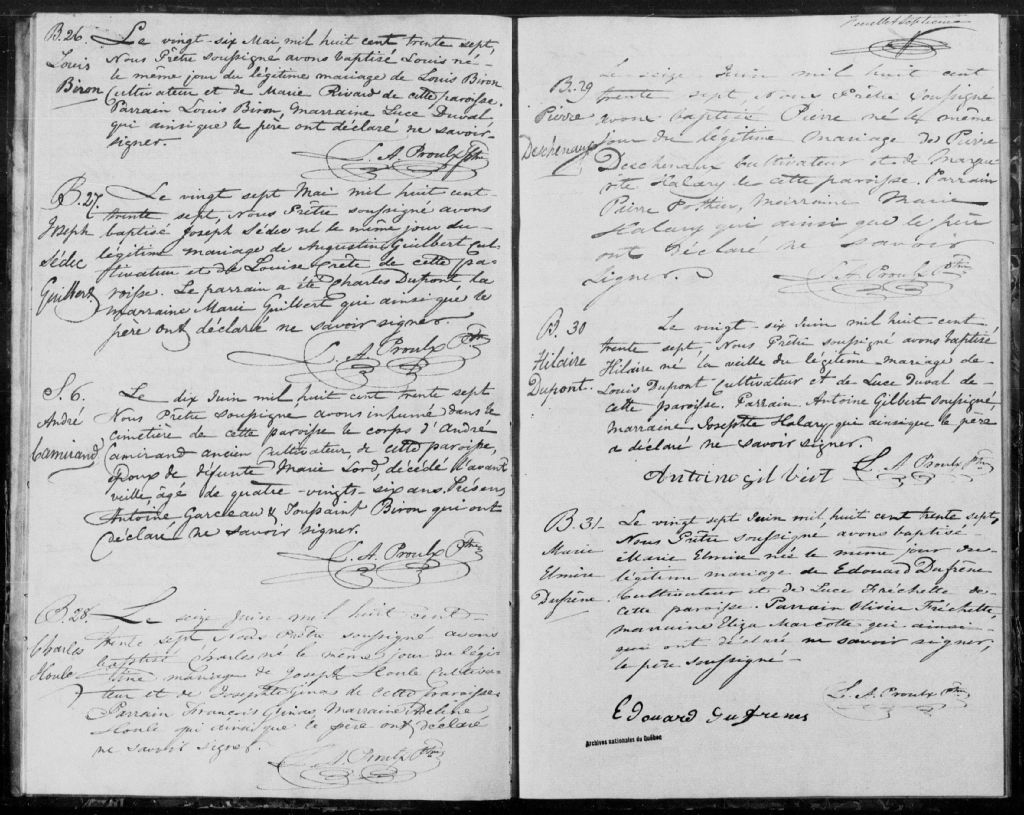 B. 26.
Louis
Biron
Le vingt-six Mai mil huit cent trente sept,
Nous Prêtre soussigné avons baptisé Louis né-
le même jour du légitime mariage de Louis Biron
Cultivateur et de Marie Rivard de cette paroisse.
Parrain Louis Biron Marraine Luce Duval,
qui ainsi que le père ont déclaré ne savoir-
signer.
L. A. Proulx Ptre
B. 27.
Joseph
Sédec
Guilbert
Le vingt sept Mai mil huit cent
trente sept, Nous Prêtre soussigné avons
baptisé Joseph Sédec né le même jour du-
légitime mariage de Augustin Guilbert Cul-
tivateur et de Louise Crête de cette pa-
roisse. Le parrain a été Charles Dupont, La
marraine Marie Guilbert qui ainsi que le
père ont déclaré ne savoir signer.
L. A. Proulx Ptre
S. 6.
André
Camirand
Le dix Juin mil huit cent trente sept
Nous Prêtre soussigné avons inhumé dans le
Cimetière de cette paroisse le corps d'André
Camirand ancien Cultivateur de cette paroisse,
Epoux de défunte Marie Lord, décédé l'avant
veille, âgé de quatre-vingts-six ans. Présens
Antoine Garceau & Toussaint Biron qui ont
déclaré ne savoir signer.
L. A. Proulx Ptre
B. 28.
Charles
Houle
Le seize Juin mil huit cent-
trente sept Nous Prêtre soussigné avons
baptisé Charles né le même jour du légi-
time mariage de Joseph Houle Cultiva-
teur et de Josephte de cette Paroisse
Parrain François Marraine
Houle qui ainsi que le père ont déclaré
ne savoir signer.
L. A. Proulx Ptre
Feuillet Septième
B. 29
Pierre
Deschenaux
Le seize Juin mil huit cent
trente sept, Nous Prêtre soussigné
avons baptisé Pierre né le même
jour du légitime mariage de Pierre
Deschenaux Cultivateur et de Margue-
rite Halary de cette paroisse. Parrain
Pierre Pothier, Marraine Marie
Halary qui ainsi que le père
ont déclaré ne savoir
signer.
L. A. Proulx Ptre
B. 30
Hilaire
Dupont.
Le vingt-six Juin mil huit-cent-
trente sept, Nous Prêtre soussigné avons baptisé
Hilaire né la veille du légitime mariage de-
Louis Dupont Cultivateur et de Luce Duval de-
cette paroisse. Parrain Antoine Gilbert soussigné,
marraine Josephte Halary qui ainsi que le père
a déclaré ne savoir signer.
Antoine gilbert L. A. Proulx Ptre
B. 31-
Marie
Elmire
Dufrêne
Le vingt sept Juin mil huit cent trente sept,
Nous Prêtre soussigné avons baptisé-
Marie Elmire née le même jour du-
légitime mariage de Edouard Dufrêne
Cultivateur et de Luce Fréchette de-
cette paroisse. Parrain Olivier Fréchette
marraine Eliza Marcotte qui ainsi
qui ont déclaré ne savoir signer,
le père soussigné-
L. A. Proulx Ptre
Edouard dufrenes
Archives nationales du Québec